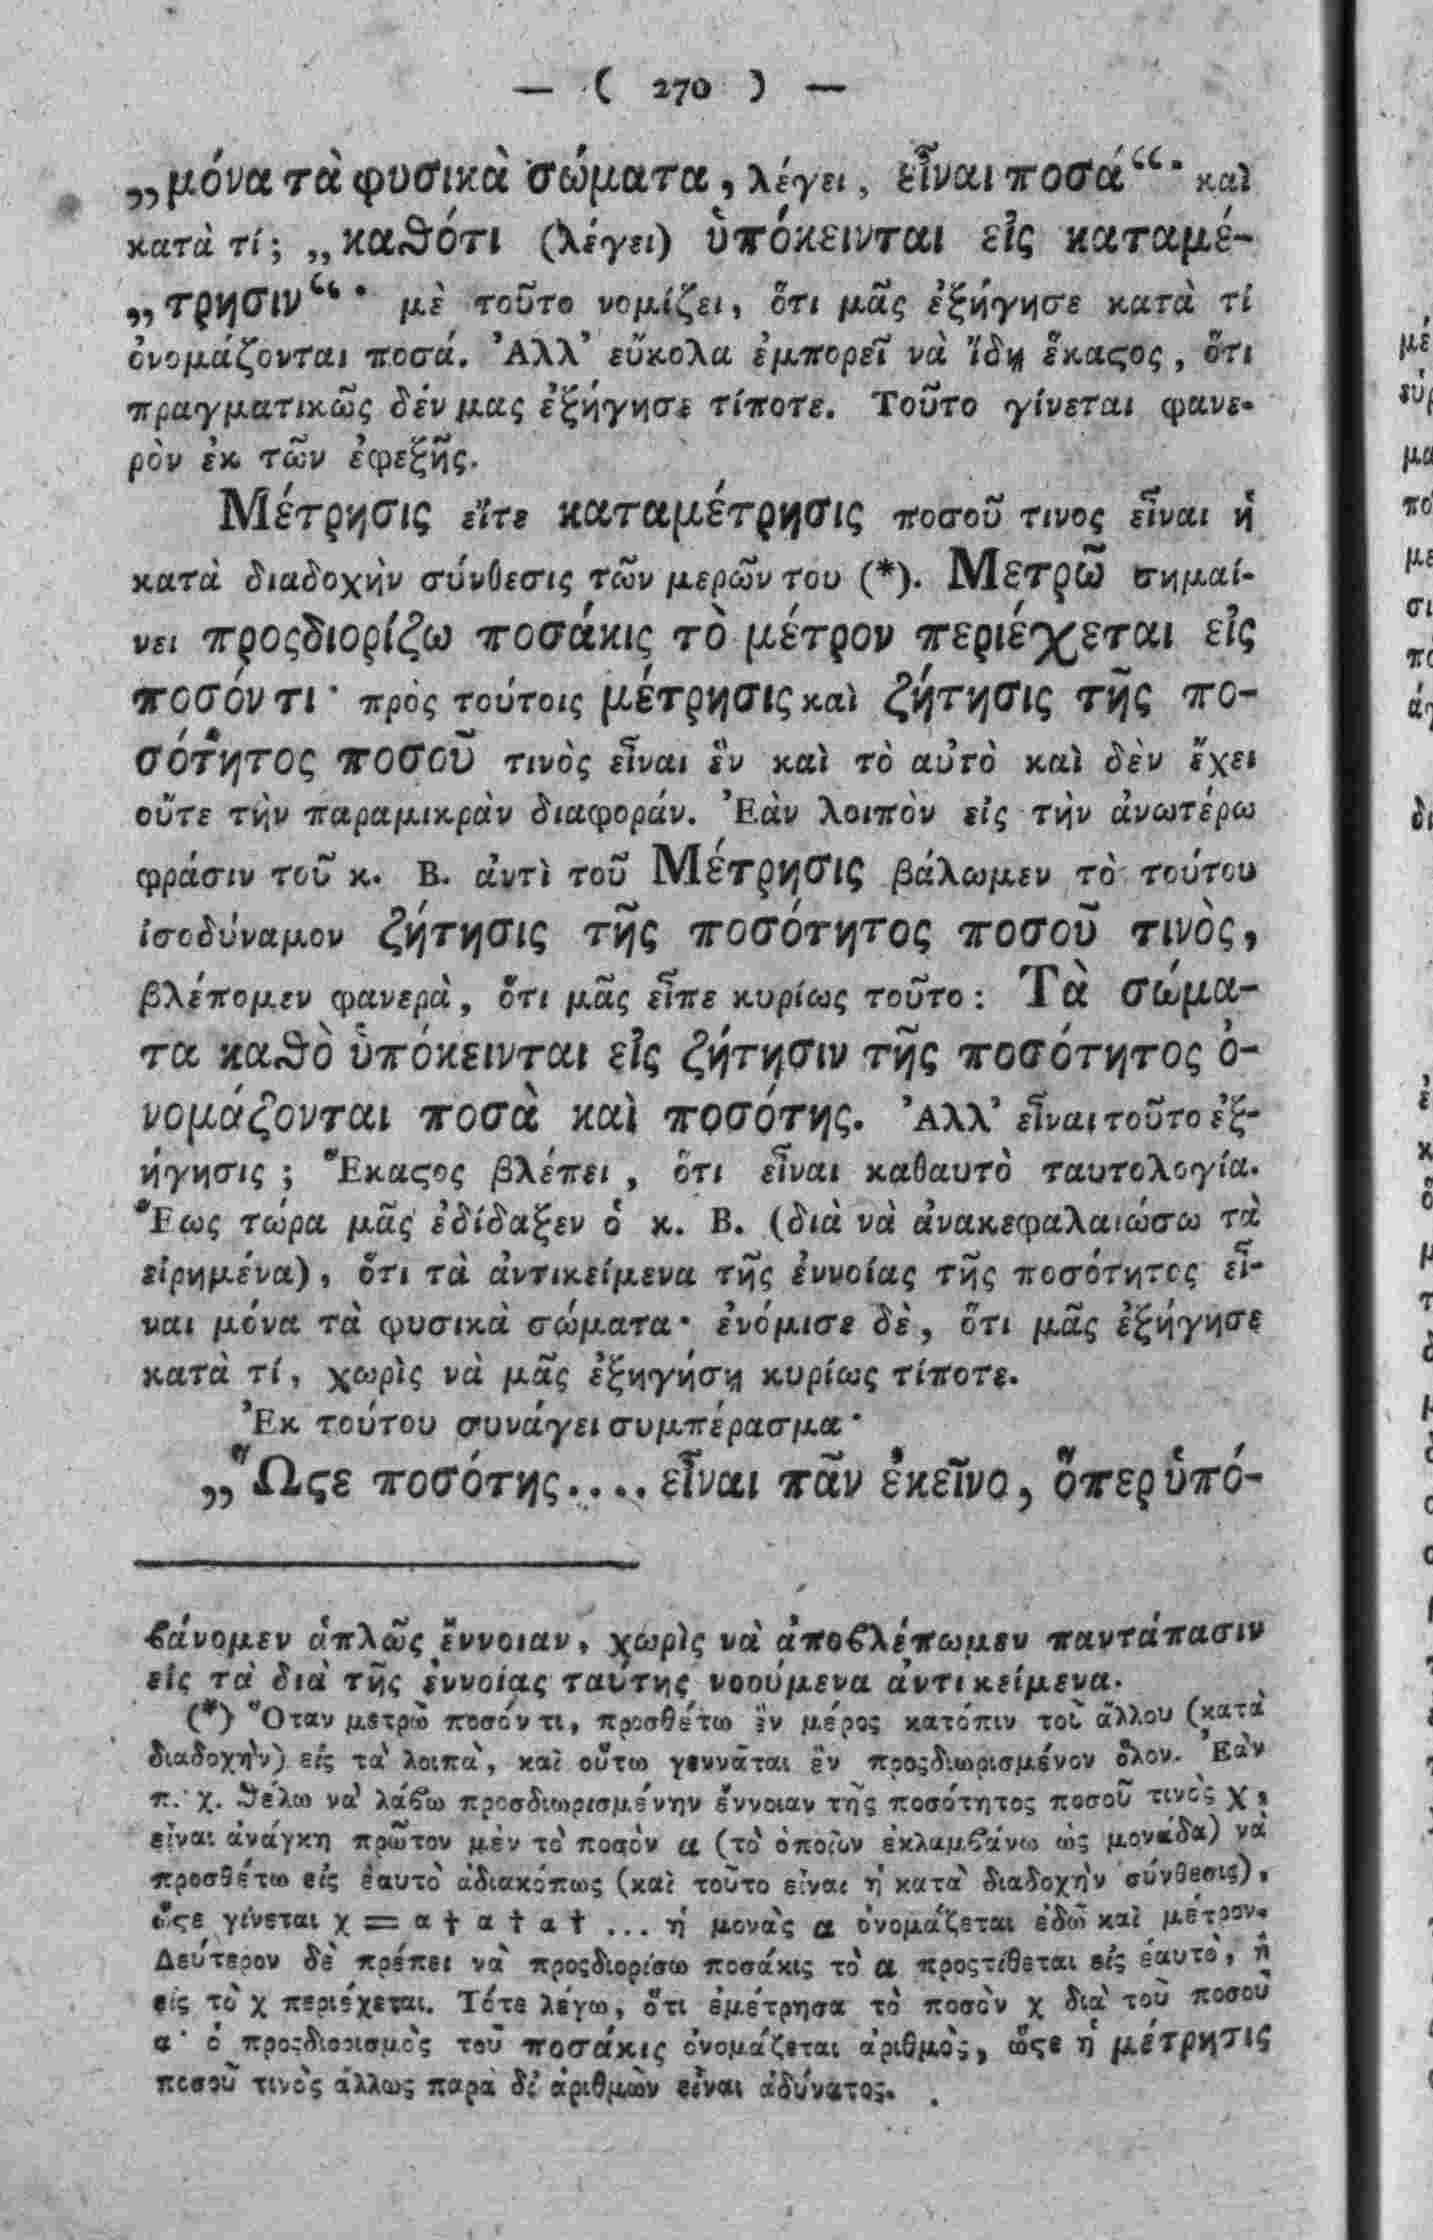 — ( 270 ) —
„μόνα τὰ φυσικὰ σώματα, λέγει, εἶναι ποσά“· καὶ
κατὰ τί; „καθότι (λέγει) ὑπόκεινται εἰς καταμέ-
„τρησιν“· μὲ τοῦτο νομίζει, ὅτι μᾶς ἐξήγησε κατὰ τί
ὀνομάζονται ποσά. Ἀλλ’ εὔκολα ἐμπορεῖ νὰ ἴδῃ ἕκαςος, ὅτι
πραγματικῶς δέν μας ἐξήγησε τίποτε. Τοῦτο γίνεται φανε-
ρὸν ἐκ τῶν ἐφεξῆς.
Μέτρησις εἴτε καταμέτρησις ποσοῦ τινος εἶναι ἡ
κατὰ διαδοχὴν σύνθεσις τῶν μερῶν του (*). Μετρῶ σημαί-
νει προςδιορίζω ποσάκις τὸ μέτρον περιέχεται εἰς
ποσόν τι· πρὸς τούτοις μέτρησις καὶ ζήτησις τῆς πο-
σότητος ποσοῦ τινὸς εἶναι ἓν καὶ τὸ αὐτὸ καὶ δὲν ἔχει
οὔτε τὴν παραμικρὰν διαφοράν. Ἐὰν λοιπὸν εἰς τὴν ἀνωτέρω
φράσιν τοῦ κ. Β. ἀντὶ τοῦ Μέτρησις βάλωμεν τὸ τούτου
ἰσοδύναμον ζήτησις τῆς ποσότητος ποσοῦ τινὸς,
βλέπομεν φανερὰ, ὅτι μᾶς εἶπε κυρίως τοῦτο: Τὰ σώμα-
τα καθὸ ὑπόκεινται εἰς ζήτησιν τῆς ποσότητος ὀ-
νομάζονται ποσὰ καὶ ποσότης. Ἀλλ’ εἶναι τοῦτο ἐξ-
ήγησις; Ἕκαςος βλέπει, ὅτι εἶναι καθαυτὸ ταυτολογία.
Ἕως τώρα μᾶς ἐδίδαξεν ὁ κ. Β. (διὰ νὰ ἀνακεφαλαιώσω τὰ
εἰρημένα), ὅτι τὰ ἀντικείμενα τῆς ἐννοίας τῆς ποσότητος εἶ-
ναι μόνα τὰ φυσικὰ σώματα· ἐνόμισε δὲ, ὅτι μᾶς ἐξήγησε
κατὰ τί, χωρὶς νὰ μᾶς ἐξηγήσῃ κυρίως τίποτε.
Ἐκ τούτου συνάγει συμπέρασμα·
„Ὥςε ποσότης.... εἶναι πᾶν ἐκεῖνο, ὅπερ ὑπό-
βάνομεν ἁπλῶς ἔννοιαν, χωρὶς νὰ ἀποβλέπωμεν παντάπασιν
εἰς τὰ διὰ τῆς ἐννοίας ταύτης νοούμενα ἀντικείμενα.
(*) Ὅταν μετρῶ ποσόν τι, προσθέτω ἓν μέρος κατόπιν τοῦ ἄλλου (κατὰ
διαδοχὴν) εἰς τὰ λοιπὰ, καὶ οὕτω γεννᾶται ἓν προςδιωρισμένον ὅλον. Ἐὰν
π. χ. θέλω νὰ λάβω προσδιωρισμένην ἔννοιαν τῆς ποσότητος ποσοῦ τινὸς χ,
εἶναι ἀνάγκη πρῶτον μὲν τὸ ποσὸν α (τὸ ὁποῖον ἐκλαμβάνω ὡς μονάδα) νὰ
προσθέτω εἰς ἑαυτὸ ἀδιακόπως (καὶ τοῦτο εἶναι ἡ κατὰ διαδοχὴν σύνθεσις),
ὥςε γίνεται χ = α † α † α † ... ἡ μονὰς α ὀνομάζεται ἐδῶ καὶ μέτρον.
Δεύτερον δὲ πρέπει νὰ προςδιορίσω ποσάκις τὸ α προςτίθεται εἰς ἑαυτὸ, ἢ
εἰς τὸ χ περιέχεται. Τότε λέγω, ὅτι ἐμέτρησα τὸ ποσὸν χ διὰ τοῦ ποσοῦ
α· ὁ προςδιορισμὸς τοῦ ποσάκις ὀνομάζεται ἀριθμὸς, ὥςε ἡ μέτρησις
ποσοῦ τινὸς ἄλλως παρὰ δι’ ἀριθμῶν εἶναι ἀδύνατος.